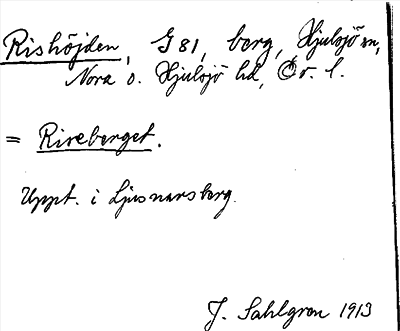 Rishöjden, G 81, berg, Hjulsjö sn,
Nora o. Hjulsjö hd, Ör. l.
= Riseberget.
Uppt. i Ljusnarsberg.
J. Sahlgren 1913